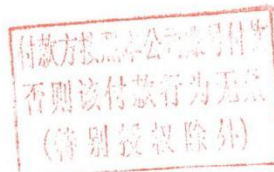 付款方按照本公司账号付款
否则该付款行为无效
(特别授权除外)